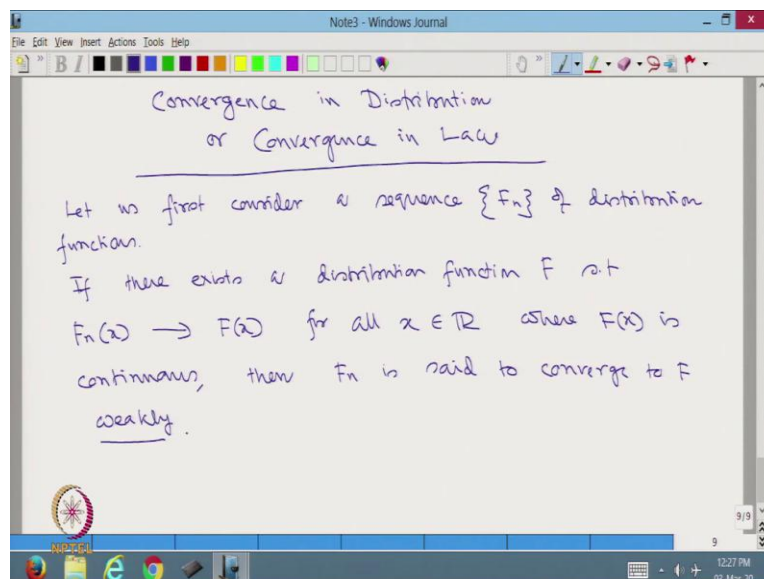 Note3 - Windows Journal
File Edit View Insert Actions Tools Help
B I
Convergence in Distribution
or Convergence in Law
Let us first consider a sequence {Fn} of distribution
functions.
If there exists a distribution function F s.t
Fn(x) → F(x) for all x ∈ ℝ where F(x) is
continuous, then Fn is said to converge to F
weakly.
NPTEL
9/9
9
12:27 PM